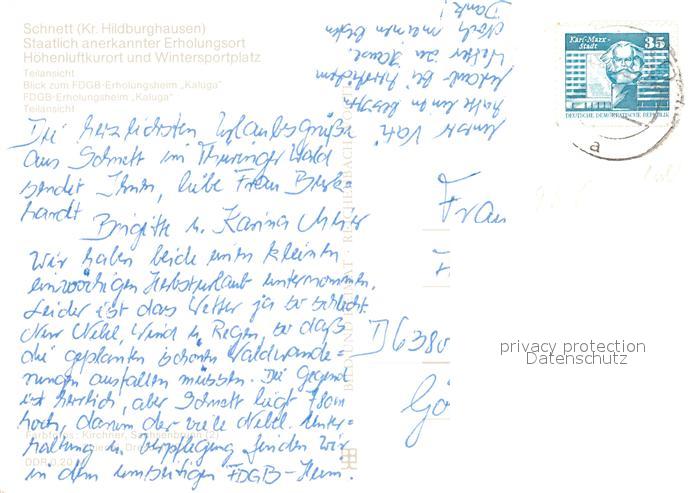 Schnett (Kr. Hildburghausen)
Staatlich anerkannter Erholungsort
Höhenluftkurort und Wintersportplatz
Teilansicht
Blick zum FDGB-Erholungsheim „Kaluga"
FDGB-Erholungsheim „Kaluga"
Teilansicht
Die herzlichsten Urlaubsgrüße
aus Schnett im Thüringer Wald
sendet Ihnen, liebe Frau Burk-
hardt
Brigitte u. Karina
Wir haben beide einen kleinen
einwöchigen Herbsturlaub unternommen.
Leider ist das Wetter ja so schlecht.
Nur Nebel, Wind u. Regen, so daß
die geplanten schönen Waldwande=
rungen ausfallen müssen. Die Gegend
ist herrlich, aber Schnett liegt
hoch, darum der viele Nebel. Unter-
haltung u. Verpflegung finden wir
in dem FDGB-Heim.
Unser Vati
Urlaub bei
Noch meinen besten
Dank!
Karl-Marx-
Stadt
35
DEUTSCHE DEMOKRATISCHE REPUBLIK
a
Frau
D 6380
Gö
privacy protection
Datenschutz